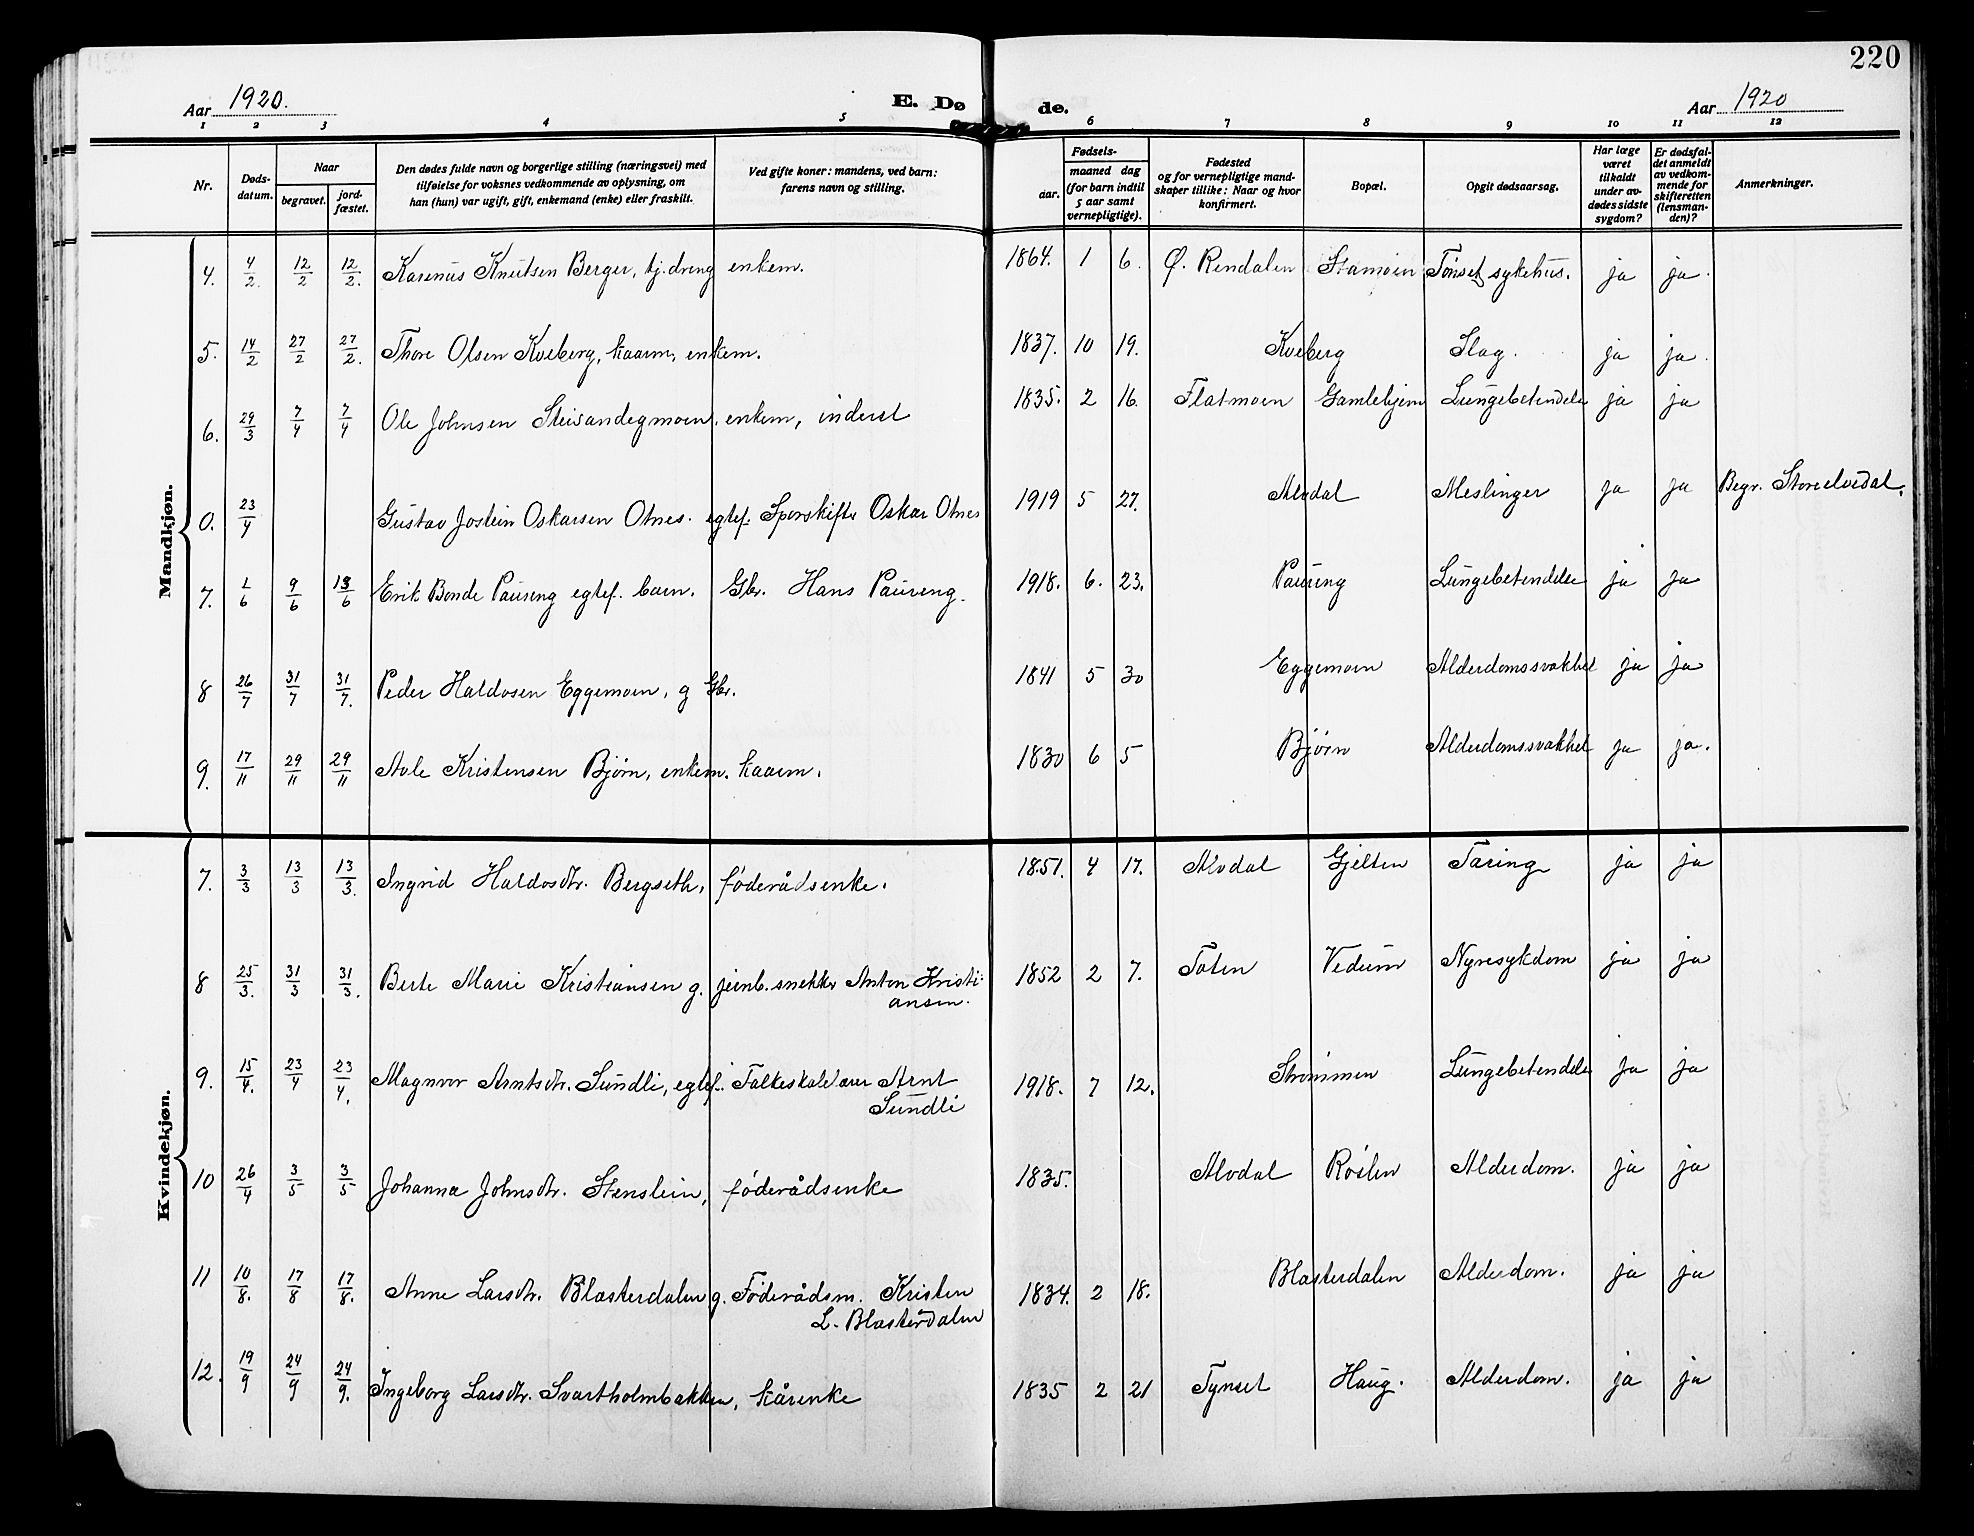 220
Aar 1920. E. Dø de. Aar 1920
1 2 3 4 5 6 7 8 9 10 11 12
Nr. Døds-datum. Naar begravet. jord-fæstet. Den dødes fulde navn og borgerlige stilling (næringsvei) med tilføielse for voksnes vedkommende av oplysning, om han (hun) var ugift, gift, enkemand (enke) eller fraskilt. Ved gifte koner: mandens, ved barn: farens navn og stilling. Fødsels- aar. maaned dag (for barn indtil 5 aar samt vernepligtige). Fødested og for vernepligtige mand-skaper tillike: Naar og hvor konfirmert. Bopæl. Opgit dødsaarsag. Har læge været tilkaldt under av-dødes sidste sygdom? Er dødsfal-det anmeldt av vedkom-mende for skifteretten (lensman-den)? Anmerkninger.
Mandkjøn.
4. 4/2. 12/2 12/2. Karenus Knutsen Berger, tj.dreng enkem. 1864. 1 6. Ø. Rendalen Stamoen Tønset sykehus. ja ja.
5. 14/2 27/2 27/2. Thore Olsen Kveberg, kaarm, enkem. 1837. 10 19. Kveberg Slag. ja ja.
6. 29/3 7/4 7/4 Ole Johnsen Steisandegmoen, enkem, inderst 1835. 2 16. Flatmoen Gamlehjem Lungebetendelse ja ja
0. 23/4 Gustav Jostein Oskarsen Otnes. egtef. Sporskifter Oskar Otnes 1919 5 27. Alvdal Meslinger ja ja Begr. Storeelvedal.
7. 1/6 9/6 13/6 Erik Bonde Paureng egtef. barn. Gbr. Hans Paureng. 1918. 6. 23. Paureng Lungebetendelse ja ja
8 26/7 31/7 31/7. Peder Haldosen Eggemoen, g Gbr. 1841 5 30 Eggemoen Alderdomssvakhet ja ja
9. 17/11 29/11 29/11 Avle Kristensen Bjørn, enkem. kaarm. 1830 6 5 Bjørn Alderdomssvakhet ja ja.
Kvindekjøn.
7. 3/3 13/3 13/3. Ingrid Haldosdtr. Bergseth, føderådsenke. 1851. 4 17. Alvdal Gjelten Tæring ja ja
8 25/3. 31/3 31/3. Berte Marie Kristiansen g. jernb. snekker Anton Kristi-
ansen. 1852 2 7. Toten Vedum Nyresykdom ja ja
9. 15/4. 23/4 23/4. Magnvor Arntsdtr. Sundli, egtef. Falkeskaldærer Arnt
Sundli 1918. 7 12. Strømmen Lungebetendelse ja ja
10 26/4 3/5 3/5 Johanna Johnsdtr. Stenslein, føderådsenke 1835. Alvdal Røslen Alderdom. ja ja
11 10/8. 17/8 17/8. Anne Larsdtr. Blæsterdalen g. Føderådsm. Kristen
L. Blæsterdalen 1834. 2 18. Blæsterdalen Alderdom. ja ja
12. 19/9 24/9 24/9. Ingeborg Larsdtr. Svartholmbakken, kårenke 1835 2 21 Tynset Haug. Alderdom. ja ja